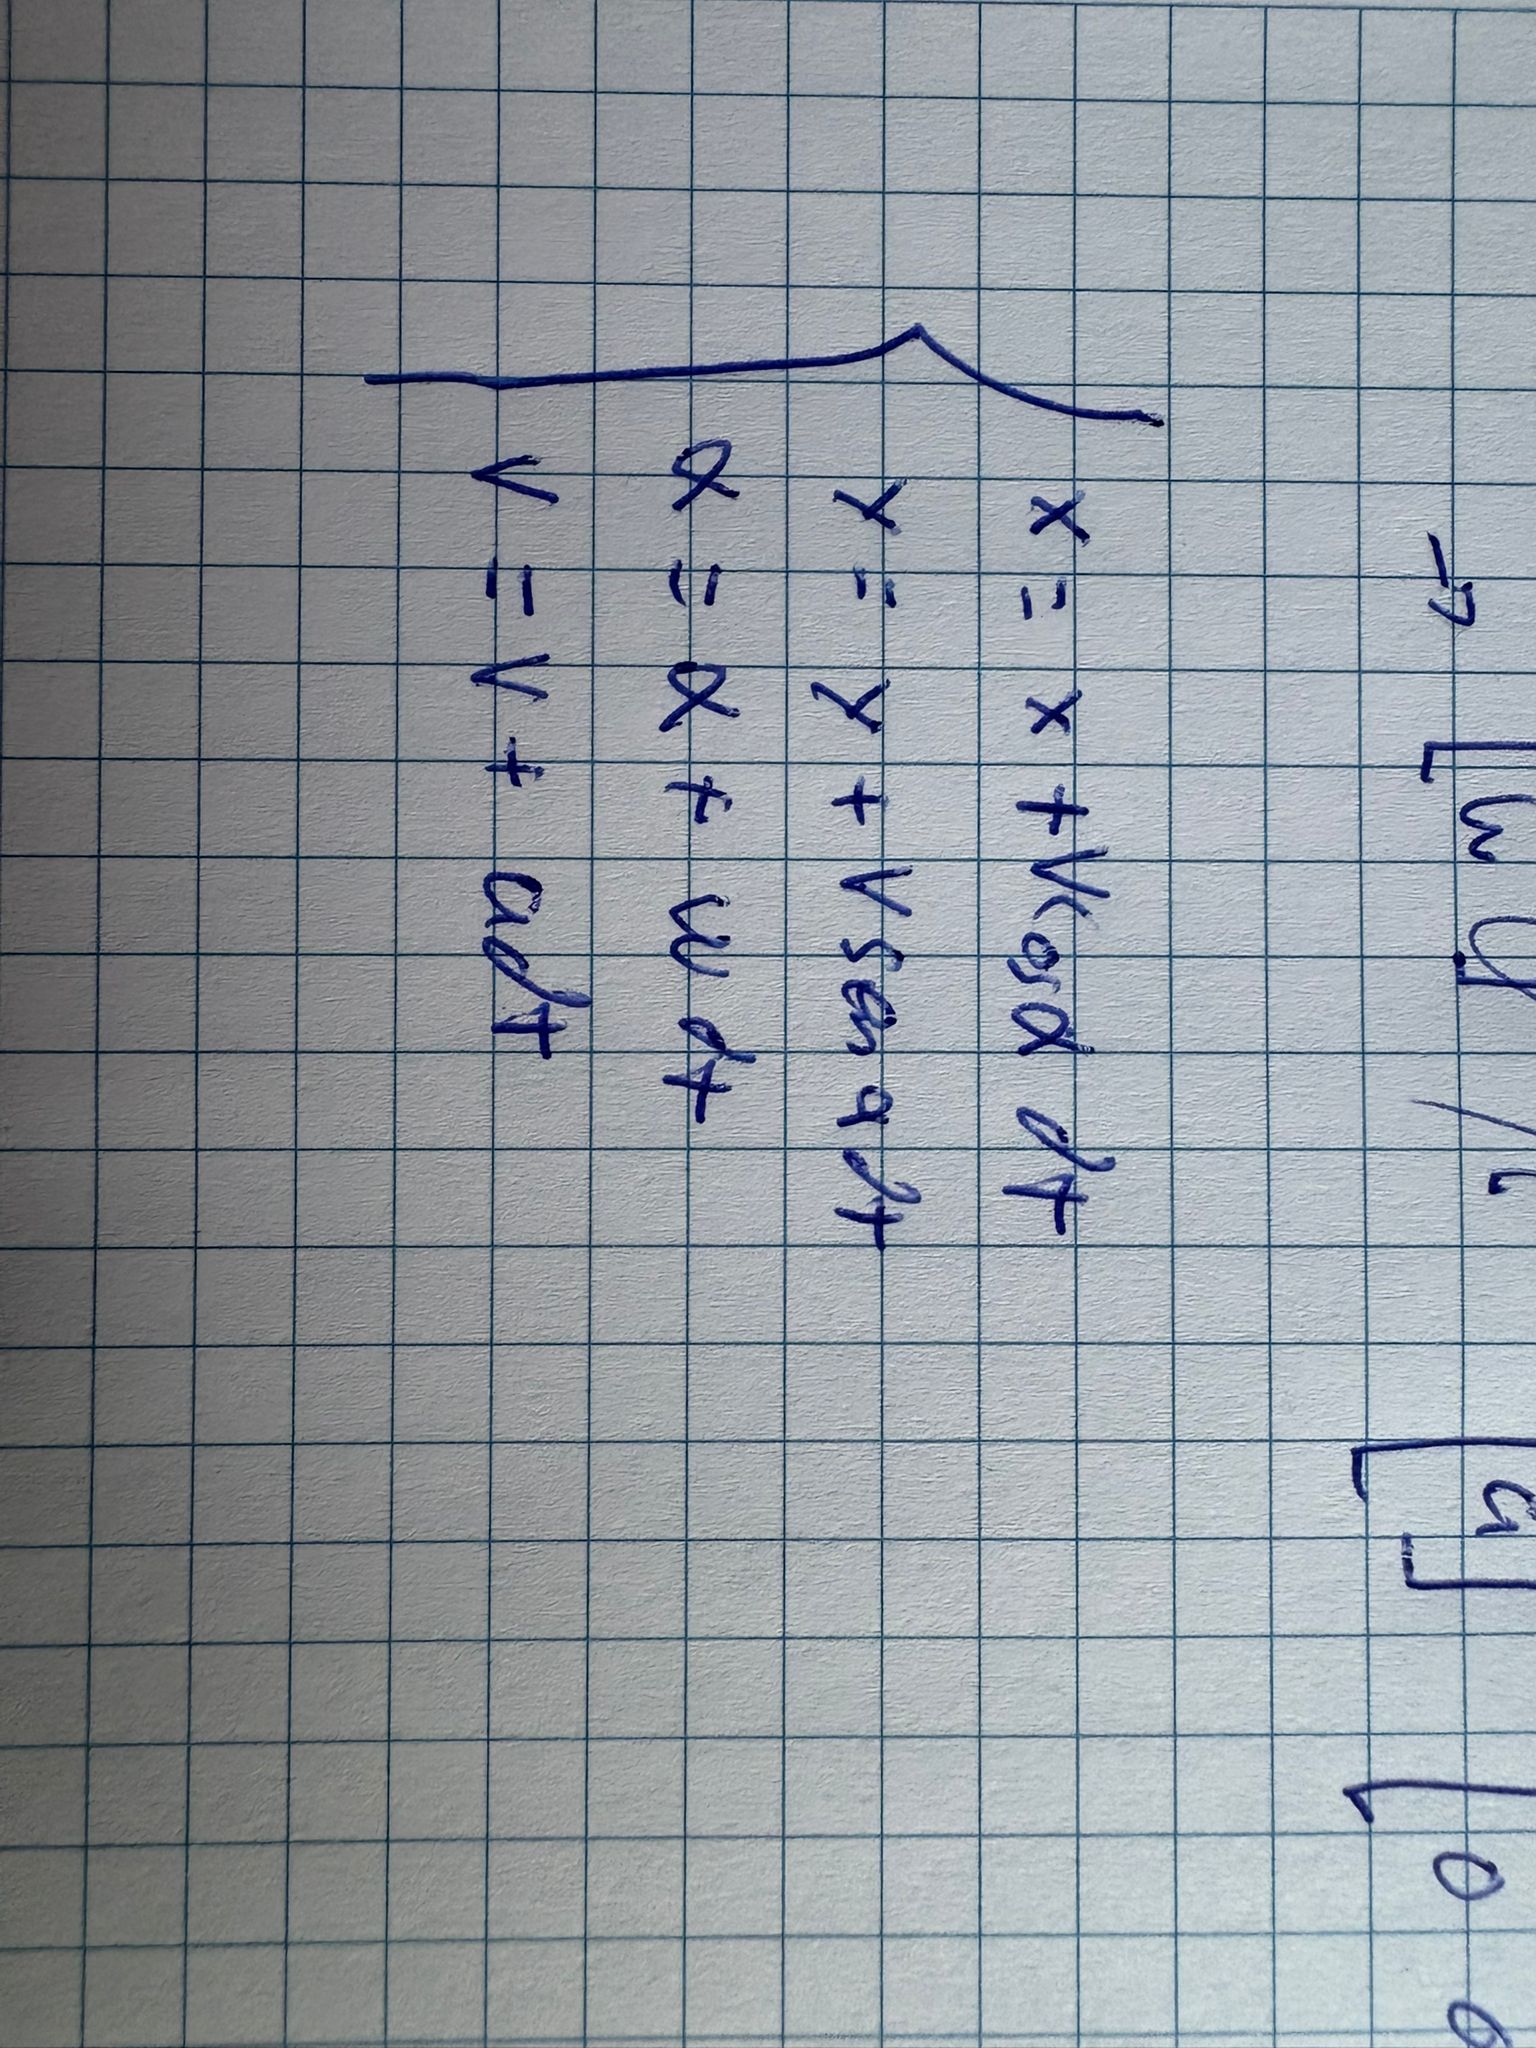 → [ω
[a] [0 0
x = x + V cos α dt
y = y + V sen α dt
α = α + w dt
v = v + a dt